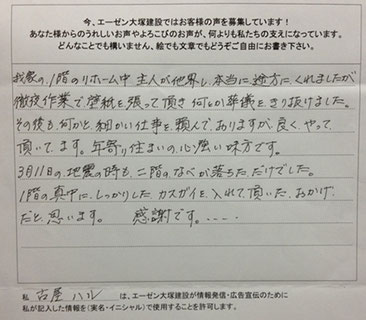 今、エーゼン大塚建設ではお客様の声を募集しています！
あなた様からのうれしいお声やよろこびのお声が、何よりも私たちの支えになっています。
どんなことでも構いません、絵でも文章でもどうぞご自由にお書き下さい。
我家の1階のリホーム中 主人が他界し本当に途方にくれましたが
徹夜作業で壁紙を張って頂き何とか葬儀をきり抜けました。
その後も何かと細かい仕事を頼んでおりますが、良くやって
頂いてます。年寄り住まいの心強い味方です。
3月11日の地震の時も二階のなべが落ちただけでした。
1階の真中にしっかりしたカスガイを入れて頂いたおかげ
だと思います。 感謝です。・・・・
私 古屋 ハル は、エーゼン大塚建設が情報発信・広告宣伝のために
私が記入した情報を（実名・イニシャル）で使用することを許可します。